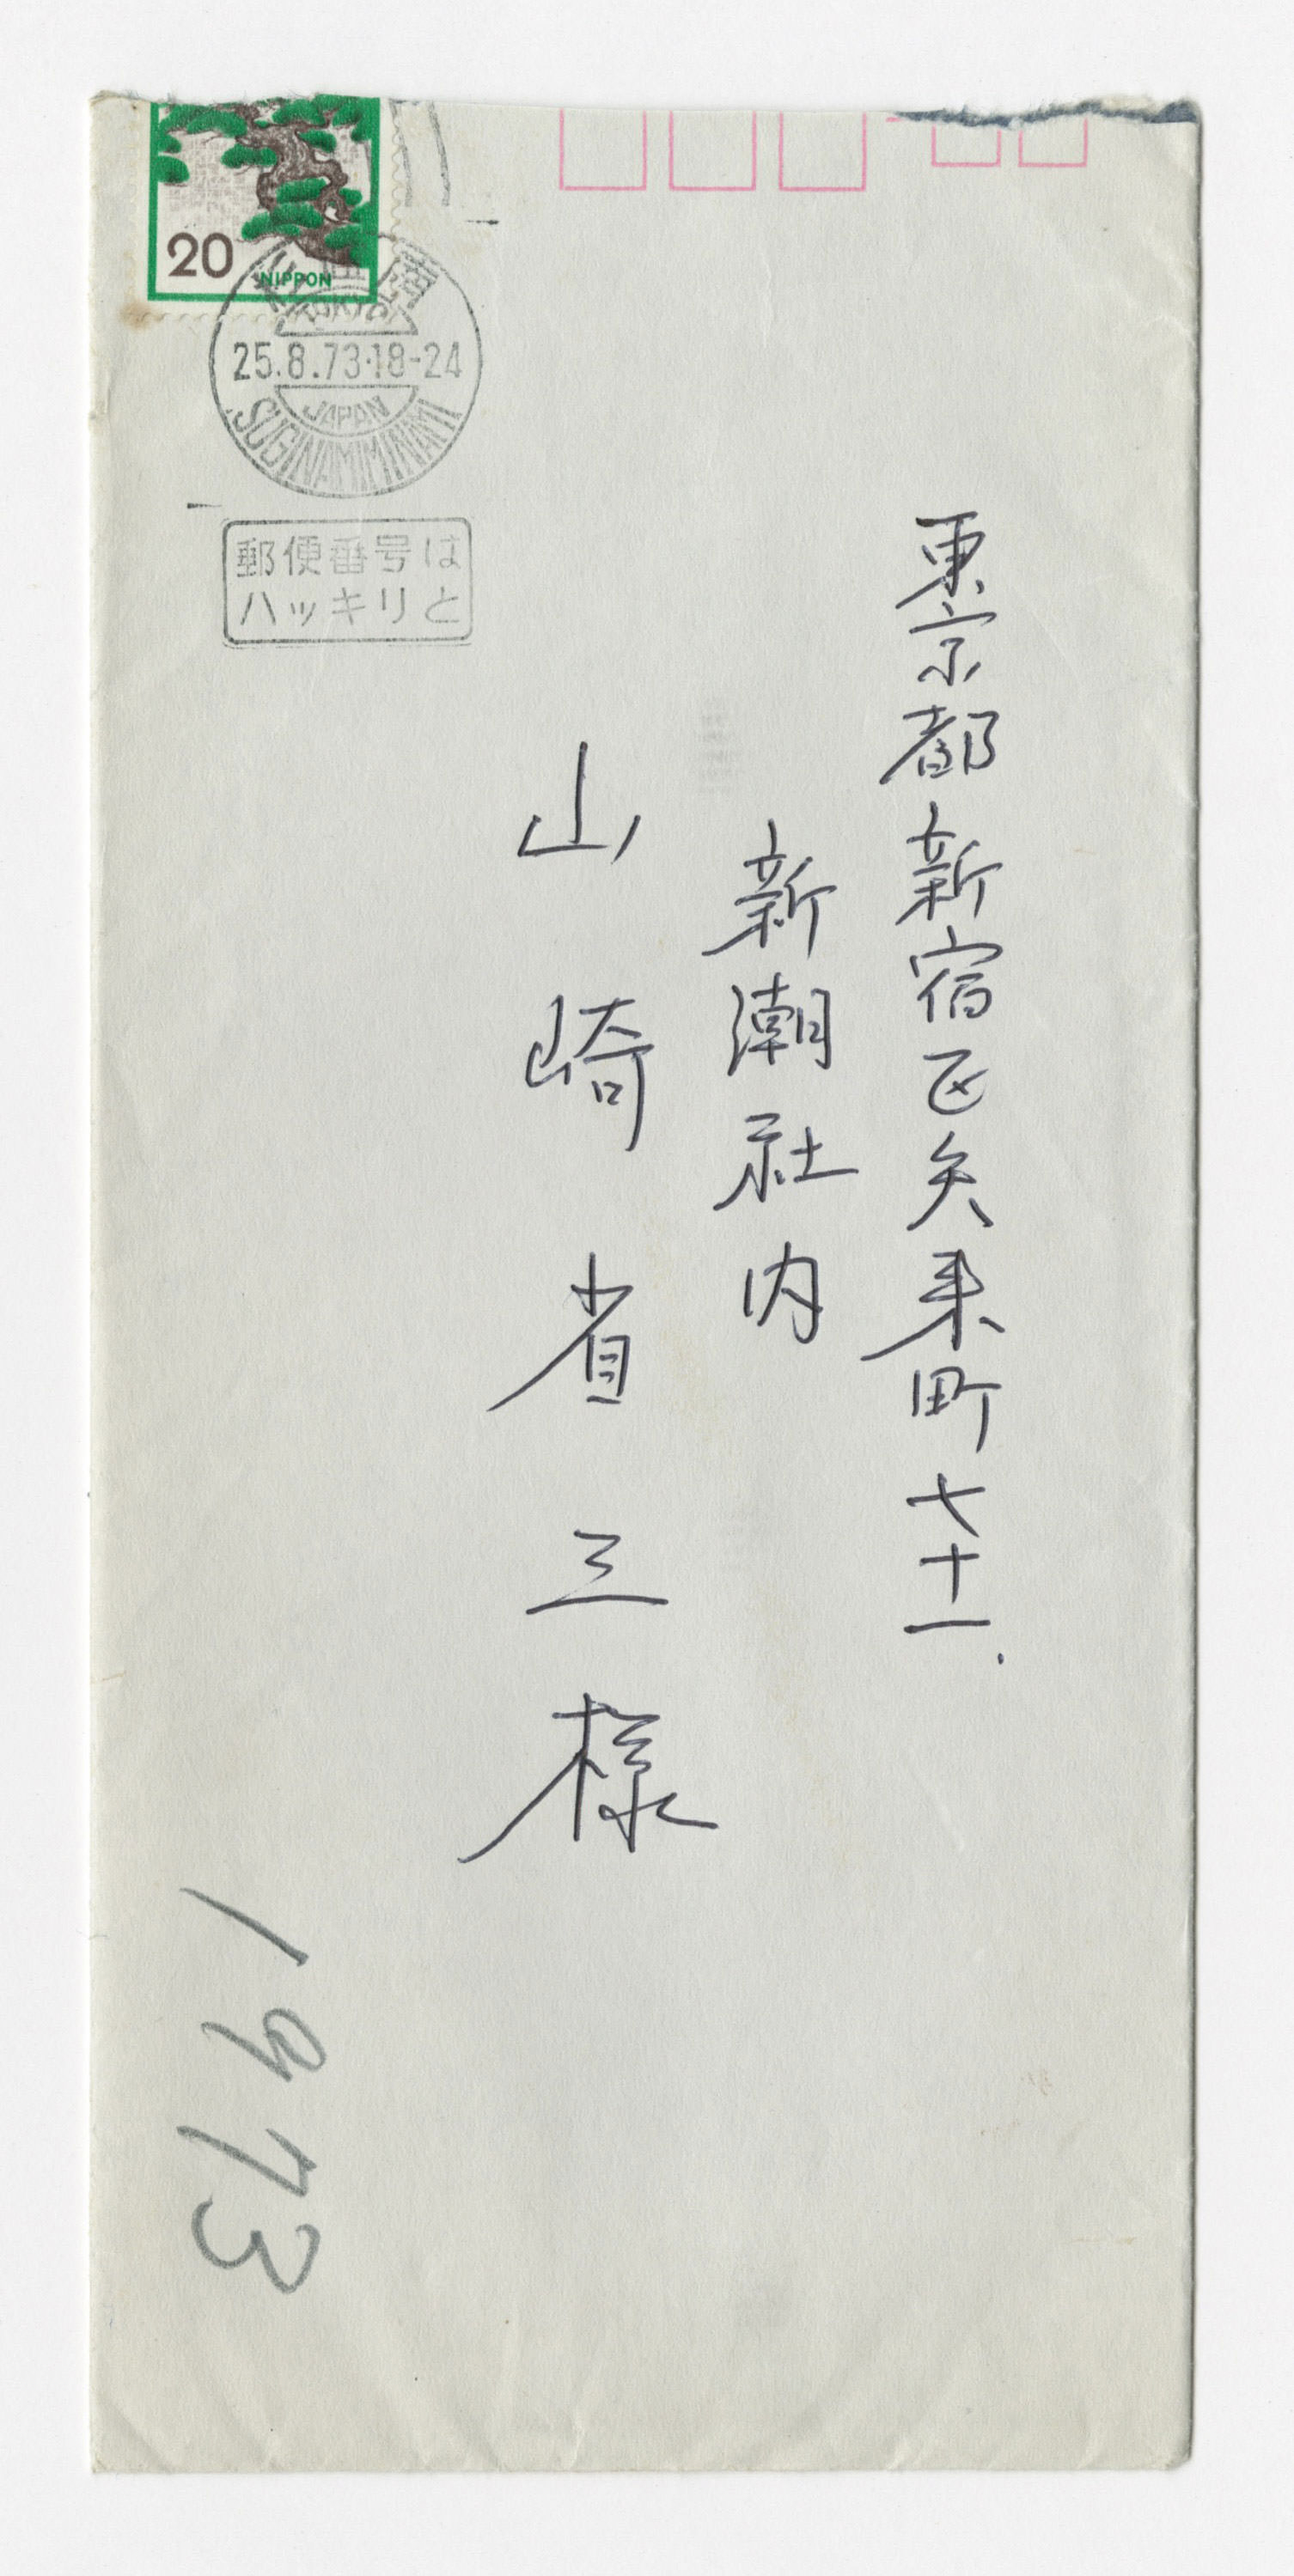 東京都新宿区矢来町七十一
新潮社内
山崎省三様
20
NIPPON
杉並南
TOKYO
25.8.73.18-24
JAPAN
SUGINAMIMINAMI
郵便番号は
ハッキリと
1973